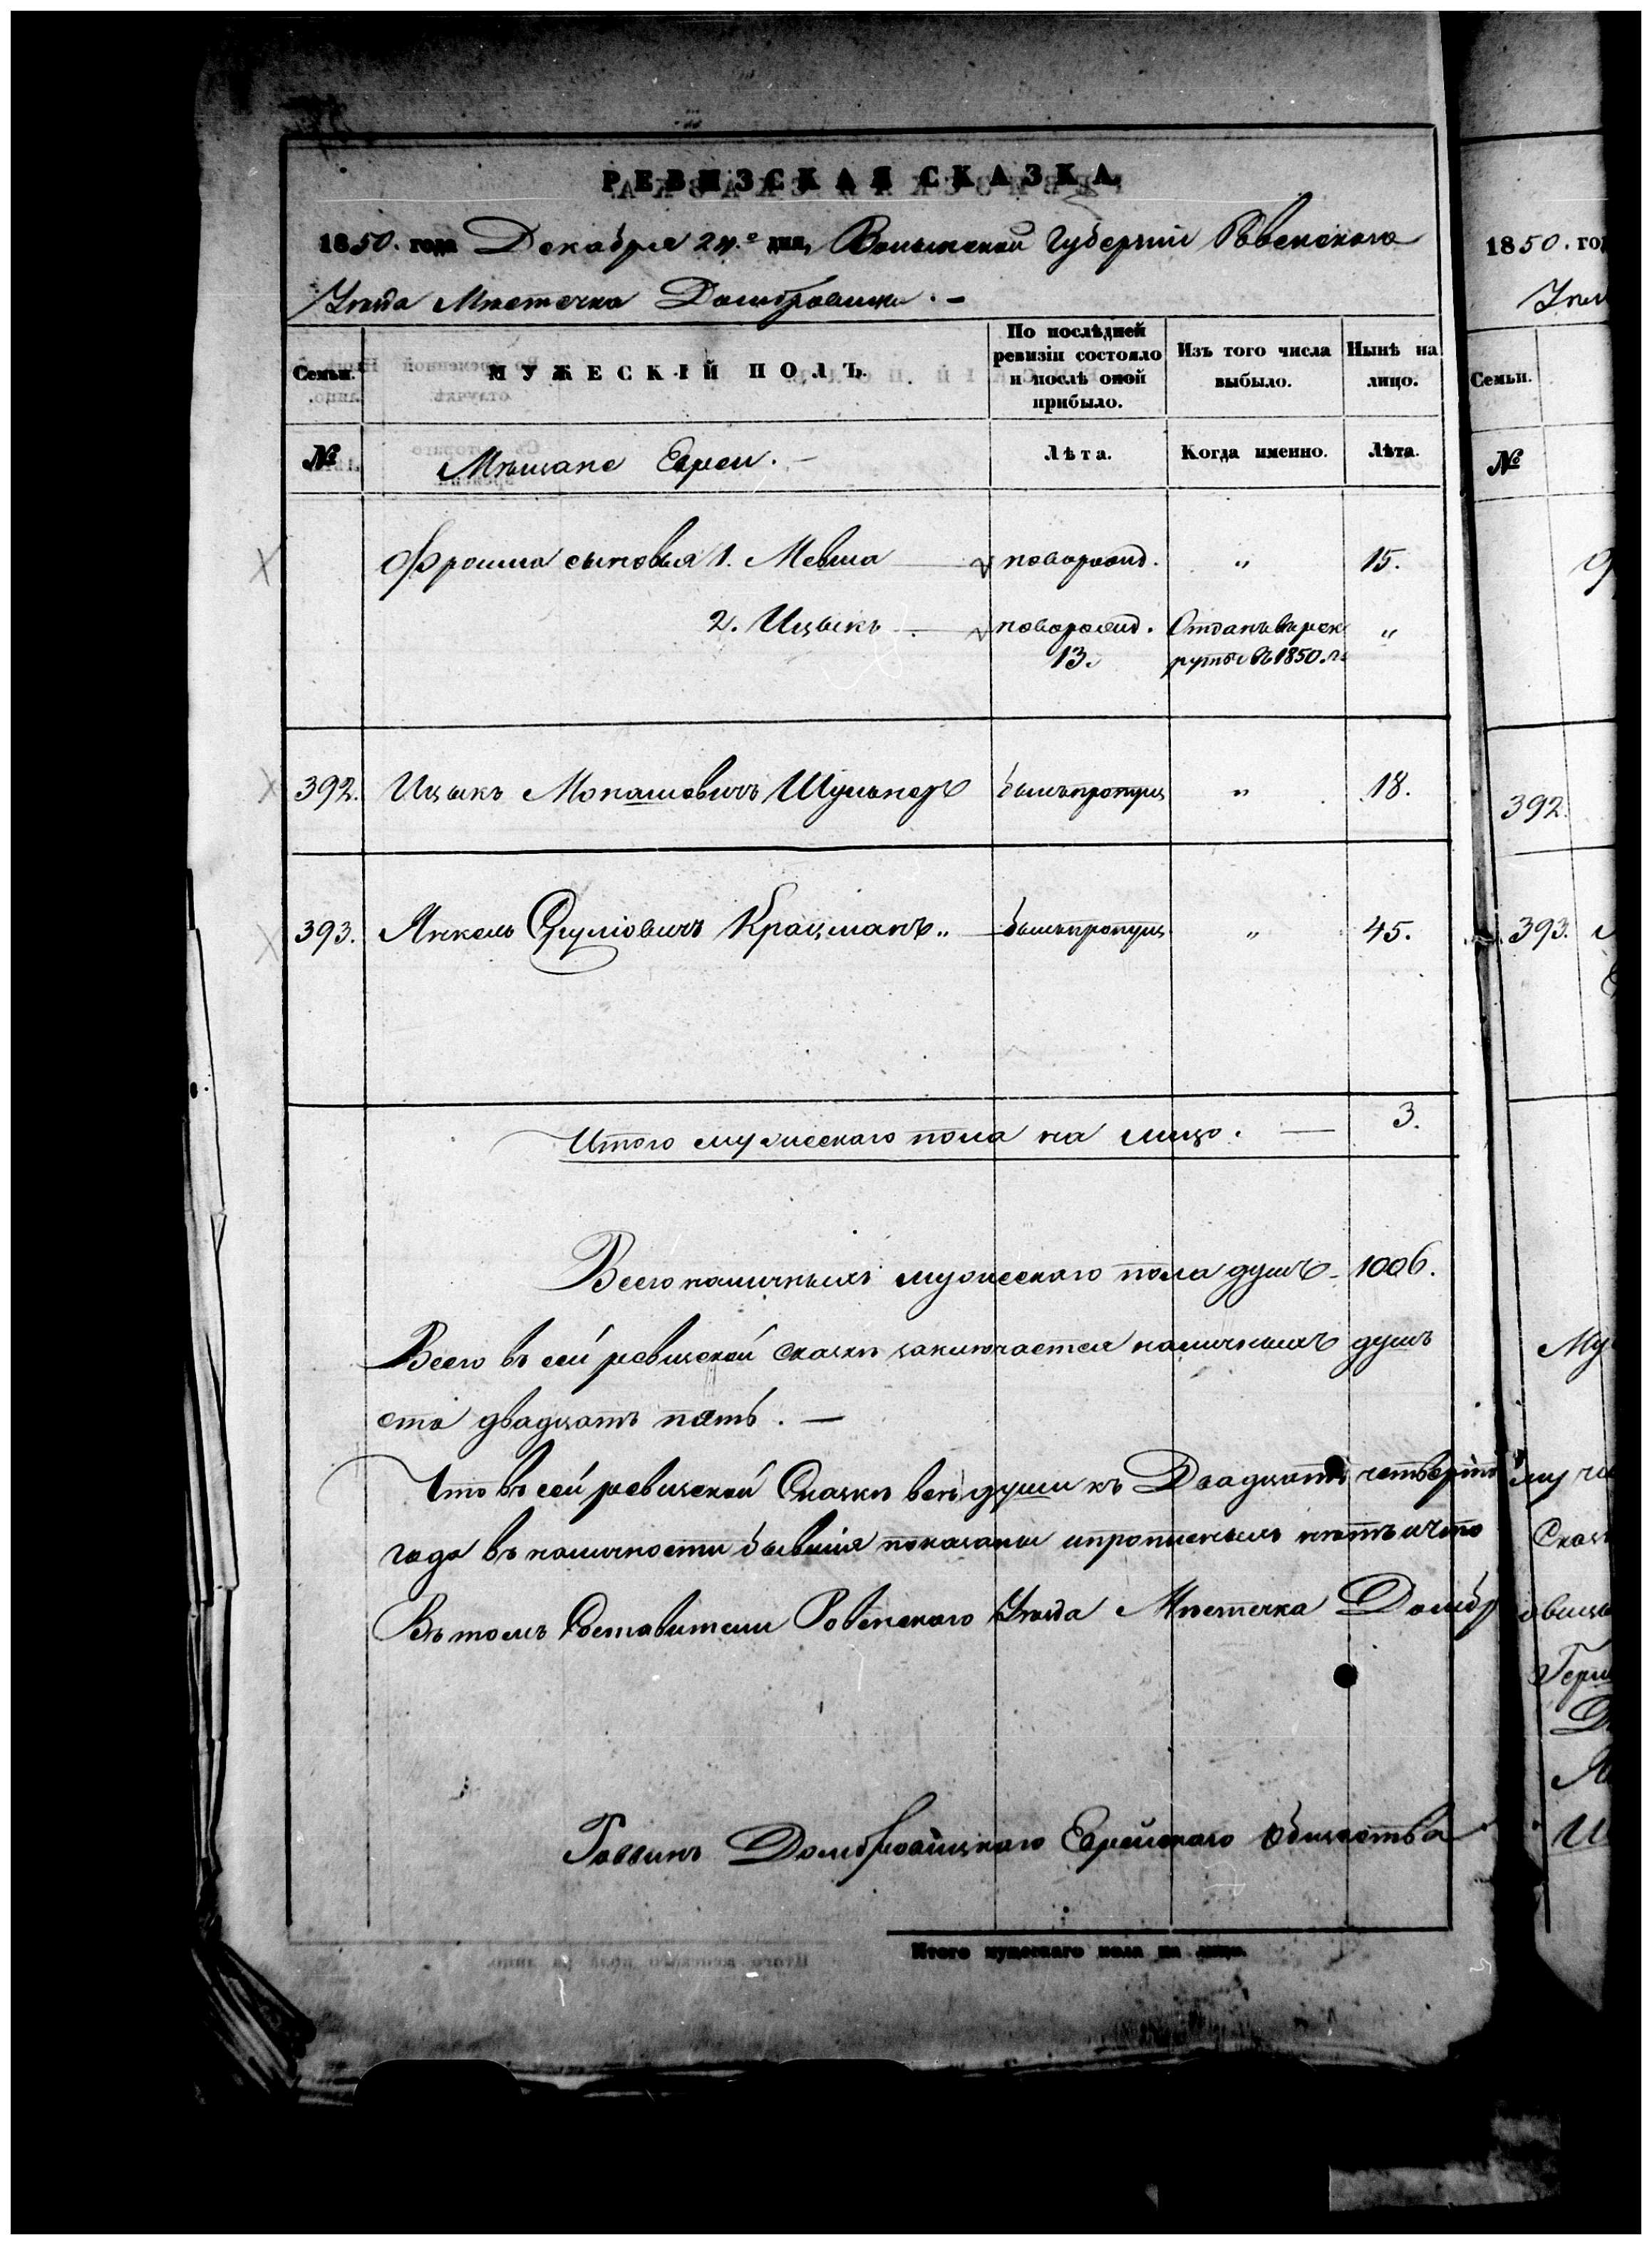 РЕВИЗСКАЯ СКАЗКА
1850. года Декабря 24.го дня, Волынской Губерніи Ровенского
Уѣзда Мѣстечка Домбровицы. —
Семьи. МУЖЕСКІЙ ПОЛЪ. По послѣдней ревизіи состояло и послѣ оной прибыло. Изъ того числа выбыло. Нынѣ на лицо.
№ Мѣщане Евреи. — Лѣта. Когда именно. Лѣта.
Фроима сыновья 1. Мевша — новорожд. " 15.
2. Ицыкъ — новорожд. Отданъ въ рек "
13. руты въ 1850. г:
392. Ицыкъ Монашовичъ былъ пропущ " 18.
393. Янкель Крацманъ.. — былъ пропущ " 45.
Итого мужескаго пола на лицо. — 3.
Всего наличныхъ мужескаго пола душъ — 1006.
Всего въ сей ревизской сказкѣ заключается наличныхъ душъ
сто двадцать пять. —
Что въ сей ревизской Сказкѣ всѣ души къ Двадцать четверто му
года въ наличности бывшія показаны и прописныхъ нѣтъ и что Сказ
Въ томъ Составители Ровенского Уѣзда Мѣстечка Домбр овиц
Раввинъ Домбровицкаго Еврейскаго Общества
Итого мужескаго пола на лицо.
1850. го
Семьи.
№
392.
393.
Му